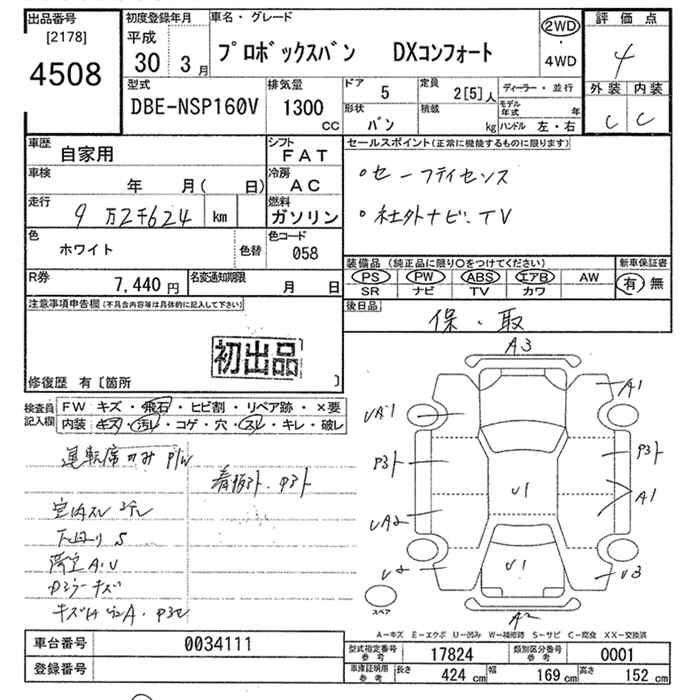 出品番号
[2178]
4508
初度登録年月
平成
30 3 月
車名・グレード
プロボックスバン DXコンフォート
2WD
・
4WD
評価点
4
外装 内装
C C
型式
DBE-NSP160V
排気量
1300
CC
ドア
5
定員
2[5]人
ディーラー・並行
形状
バン
積載
kg
モデル年式 年
ハンドル 左・右
車歴
自家用
シフト
FAT
車検
年 月( 日)
冷房
AC
走行
9万2千624 km
燃料
ガソリン
色
ホワイト
色替
色コード
058
R券
7,440 円
名変通知期限
月 日
セールスポイント(正常に機能するものに限ります)
。セーフティセンス
。社外ナビ、TV
装備品(純正品に限り○をつけてください)
PS PW ABS エアB AW
SR ナビ TV カワ
新車保証書
有・無
後日品
保・取
注意事項申告欄(不具合内容等は具体的に記入して下さい)
初出品
修復歴 有〔箇所 〕
検査員
記入欄
FW キズ・飛石・ヒビ割・リペア跡・×要
内装 キズ・汚レ・コゲ・穴・スレ・キレ・破レ
運転席のみ P/W
A3
A1
UA1
P3ト
P3ト
U1
A1
UA2
U1
U3
A2
スペア
A−キズ E−エクボ U−凹み W−補修跡 S−サビ C−腐食 XX−交換済
車台番号
0034111
登録番号
型式指定番号
参考
17824
類別区分番号
参考
0001
車庫証明用
参考
長さ
424 cm
幅
169 cm
高さ
152 cm